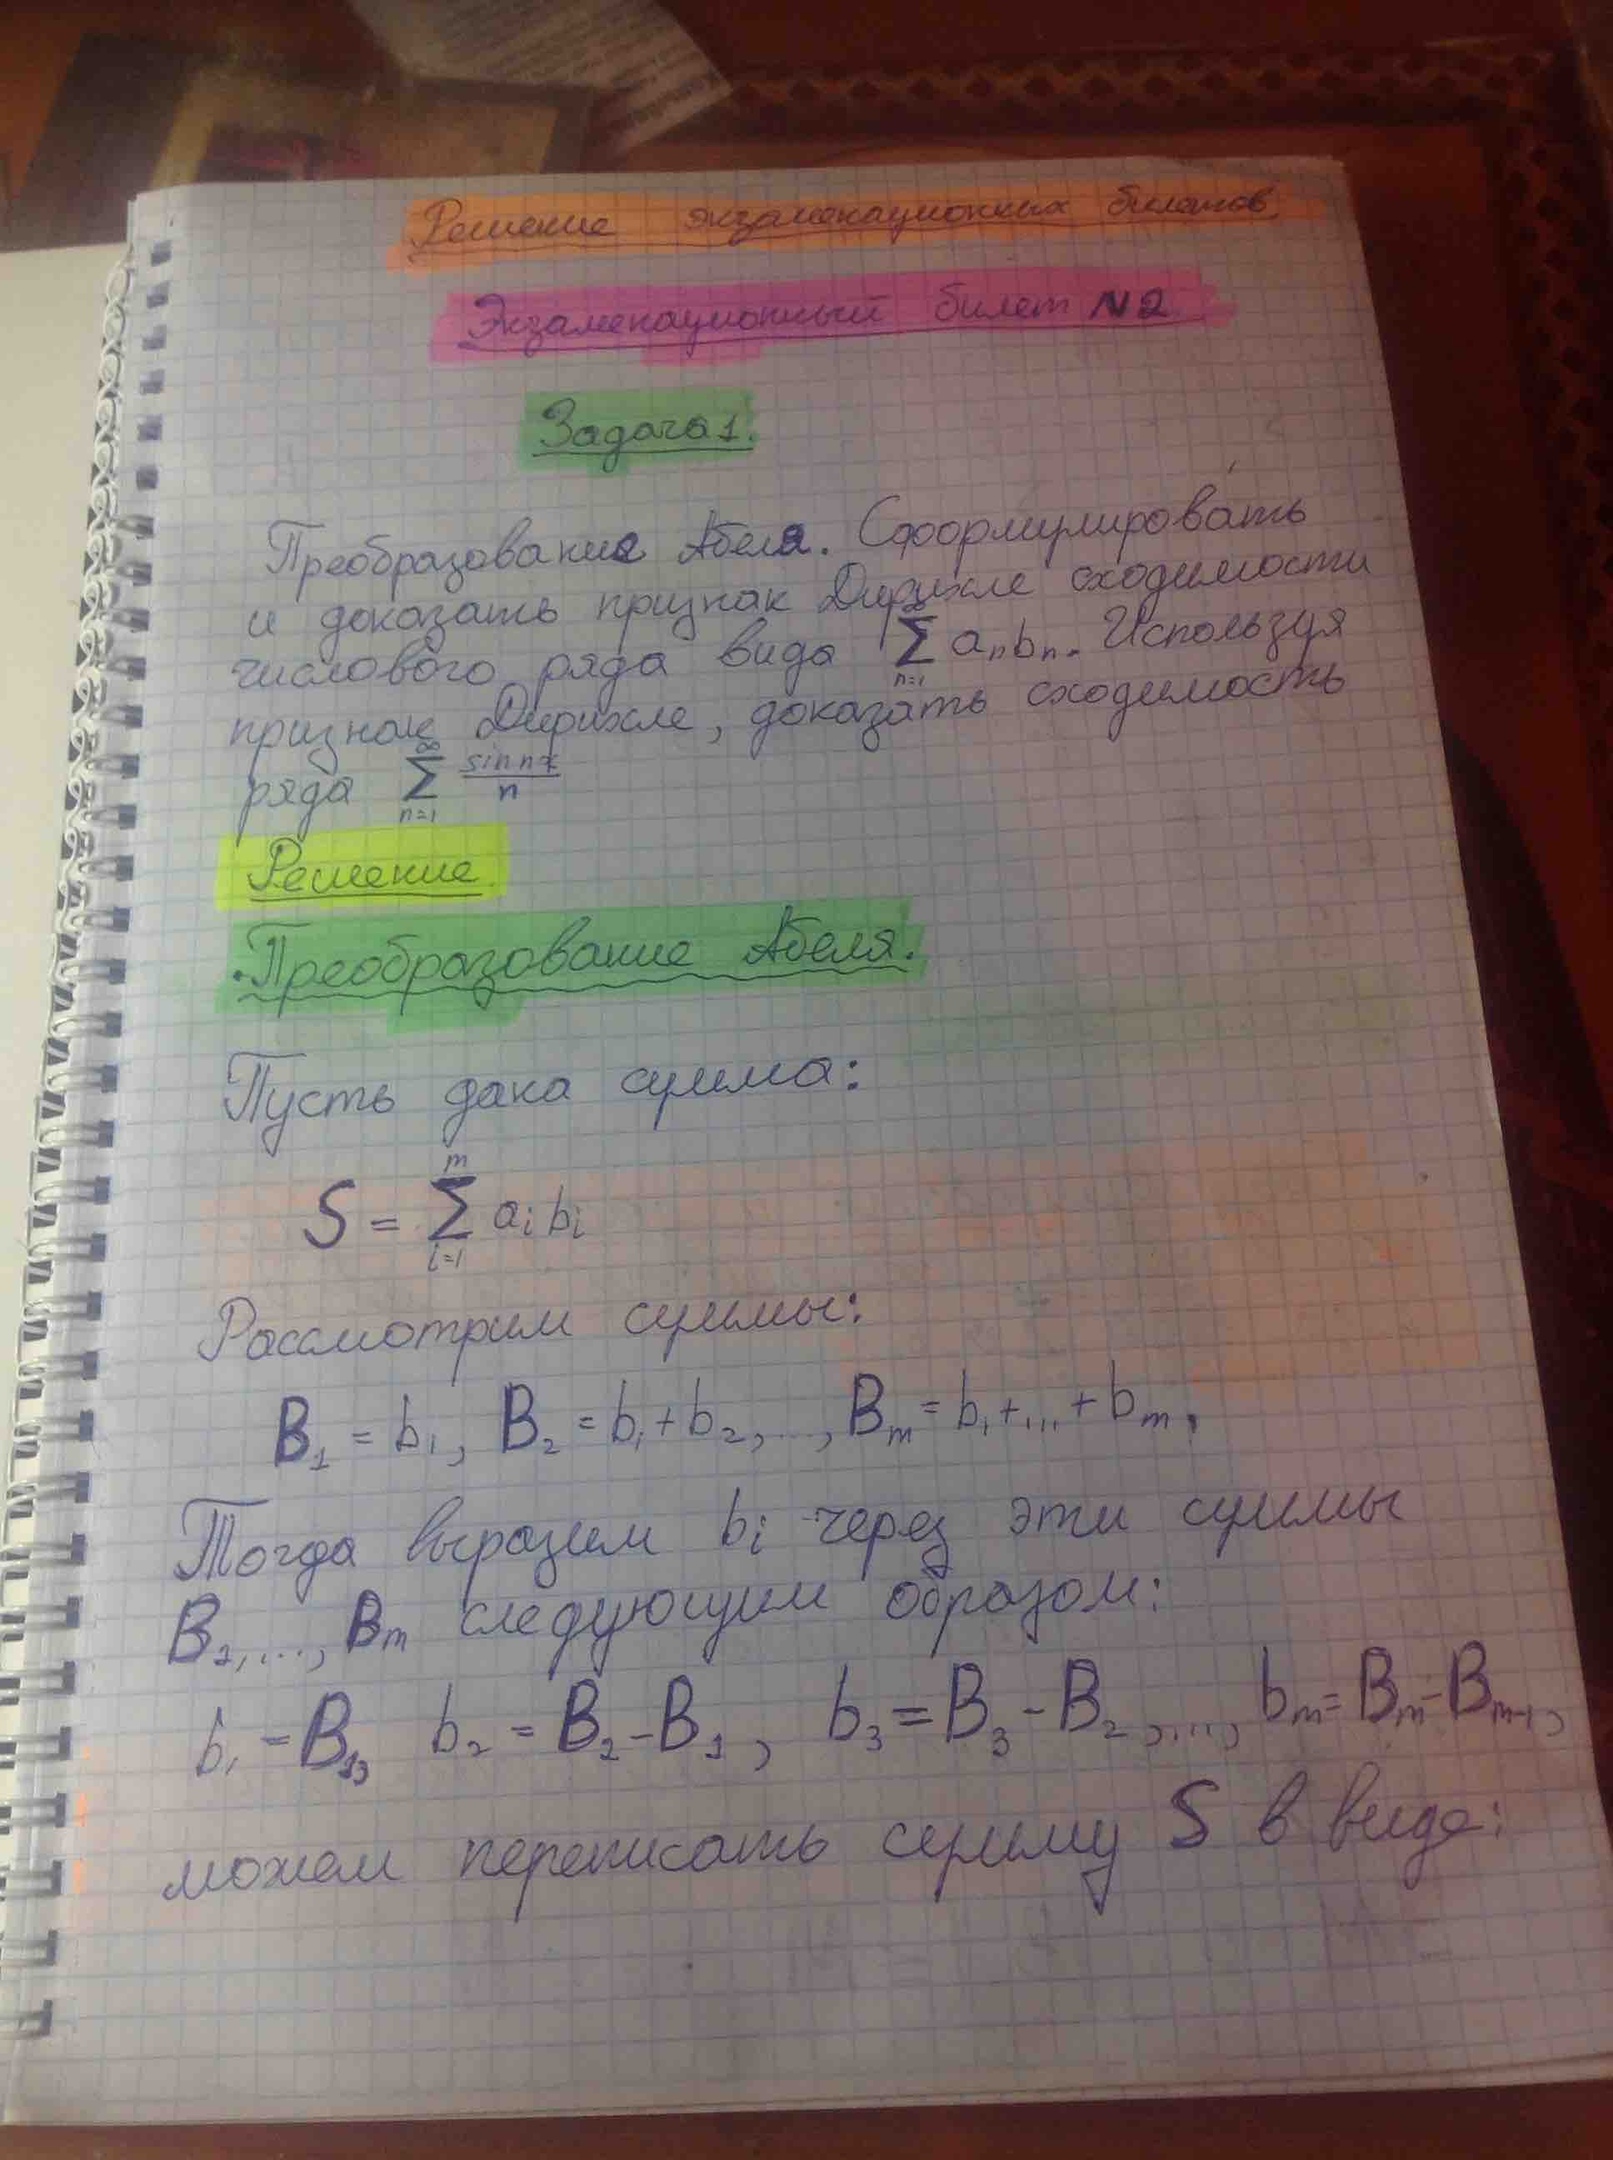 Решение экзаменационных билетов.
Экзаменационный билет N2
Задача 1.
Преобразование Абеля. Сформулировать
и доказать признак Дирихле сходимости
числового ряда вида ∑_{n=1}^{∞} aₙbₙ. Используя
признак Дирихле, доказать сходимость
ряда ∑_{n=1}^{∞} sin nx / n
Решение.
·Преобразование Абеля.
Пусть дана сумма:
S = ∑_{i=1}^{m} aᵢ bᵢ
Рассмотрим суммы:
B₁ = b₁, B₂ = b₁ + b₂, ..., Bₘ = b₁ + ... + bₘ.
Тогда выразим bᵢ через эти суммы
B₁, ..., Bₘ следующим образом:
b₁ = B₁, b₂ = B₂ - B₁, b₃ = B₃ - B₂, ..., bₘ = Bₘ - Bₘ₋₁,
можем переписать сумму S в виде: